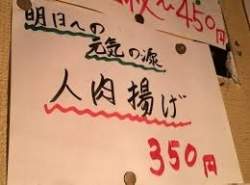 〜450円
明日への
元気の源
人肉揚げ
350円